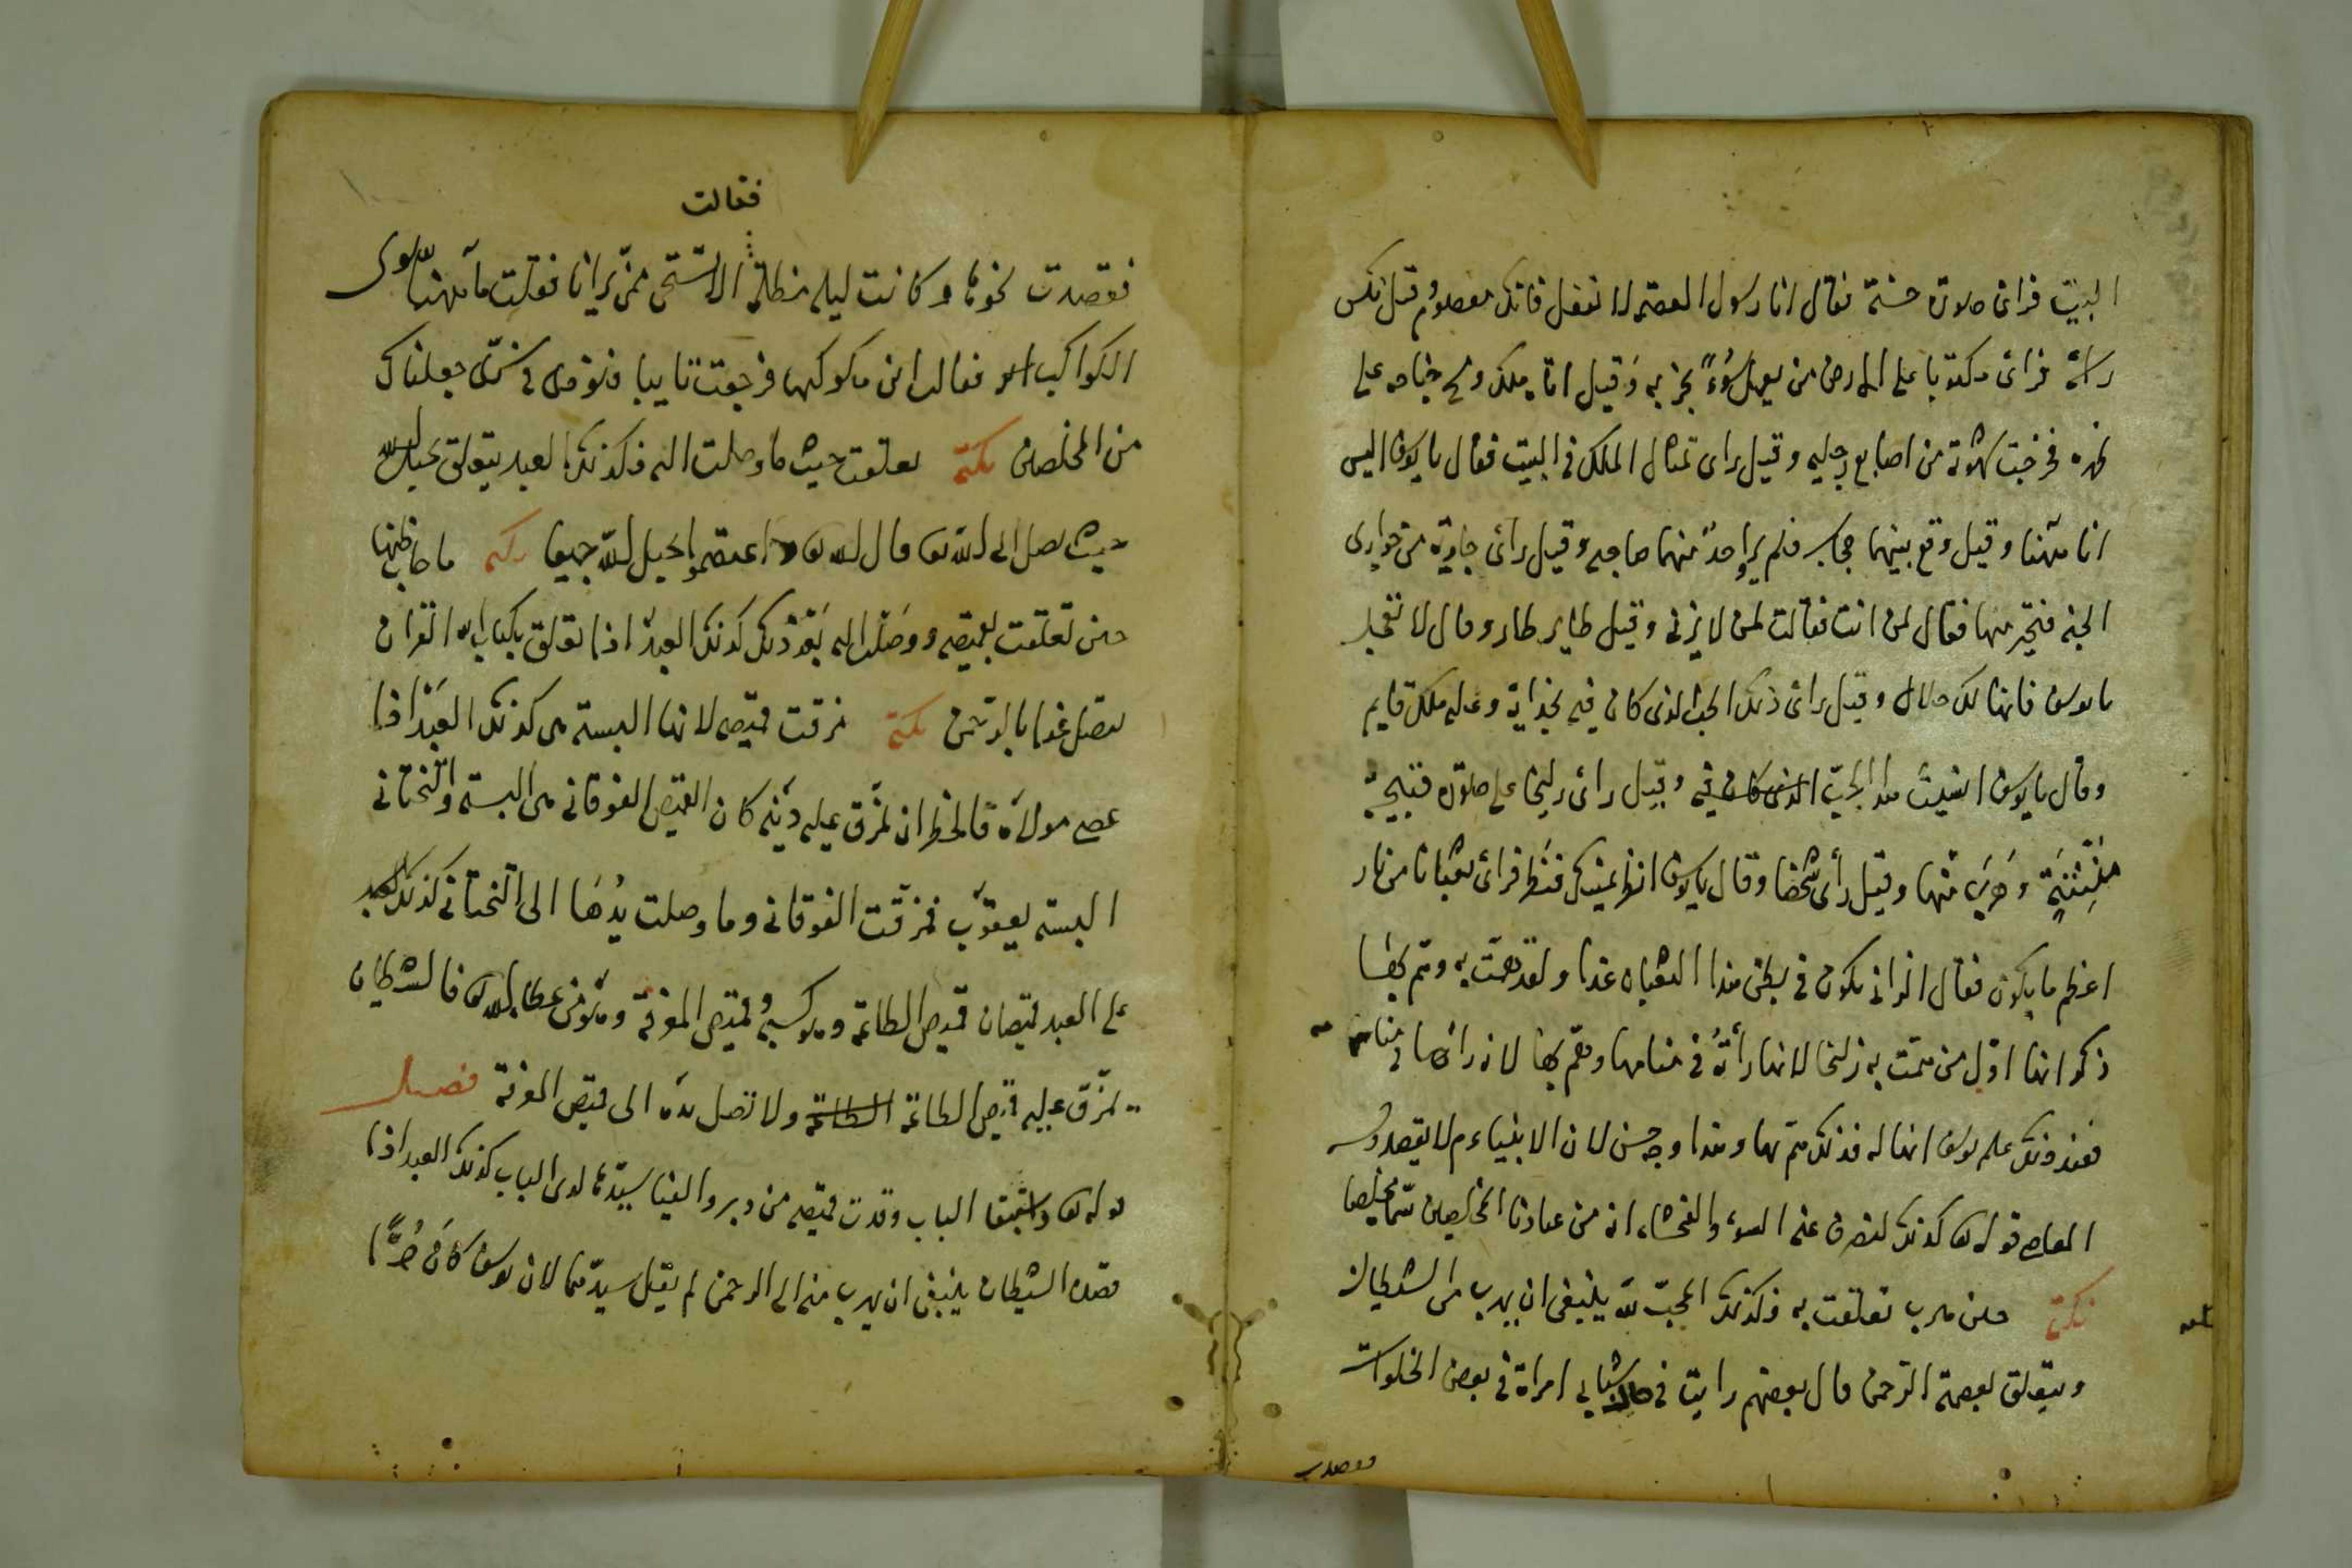 البيت فرائ صورة حسنة فقال انا رسول العصمة لا تفعل فانك معصوم وقيل نكس
راسه فرائ مكتوبا على الارض من يعمل سُوءً يجز به وَقيل اتاه ملك ومسح جناحه على
ظهره فخرجت شهوته من اصابع رجليه وقيل راى تمثال الملك في البيت فقال يا يوسف اليس
انا ههنا وقيل وقع بينهما حجاب فلم ير واحدٌ منهما صاحبه وقيل رائ جارية من جوارى
الجنة فتحير منها فقال لمن انت فقالت لمن لا يزنى وقيل طاير طار وقال لا تعجل
يا يوسف فانها لك حلال وقيل رائ ذلك الجب الذى كان فيه بحذايه وعليه ملك قايم
وقال يا يوسف انسيت هذا الجبّ الذى كان فيه وقيل رائ زليخا على صورة قبيحة
مُنْتِنَةٍ وهَربَ منها وقيل رأى شخصا وقال يا يوسف انظر بيمينك فنظر فرائ ثعبانا من نار
اعظم ما يكون فقال الزانى يكون في بطن هذا الثعبان غدا ولقد همّت به وهمّ بها
ذكر انها اوّل من همّت به زلخا لانها رأتهُ في منامها وهمّ بها لانه راها في منامه
فعند ذلك علم يوسف انها له فذلك همّ بها وهذا وجه حسن لان الانبياء م لا يقصدون
المعاصى قوله تعا كذلك لنصرف عنه السوءَ والفحشاء انه من عبادنا المخلصين سمّاه مخلصا
نكتة حين هرب تعلقت به فكذلك المحبّ للّه ينبغى ان يهرب من الشيطان
ويتعلق بعصمة الرّحمن قال بعضهم رايت في حال شبابى امراة في بعض الخلوات
فقصدت
فقالت
فقصدت نحوها وكانت ليلة مظلمة الا تستحى ممّن يرانا فقلت ما ههنا سوى
الكواكب فقالت اين مكوكبها فرجعت تايبا فنودى في سرّى جعلناك
من المخلصين نكتة تعلقت حيث ما وصلت اليه فكذلك العبد يتعلق بحبل اللّه
حيث يصل الى اللّه تعا قال اللّه تعا واعتصموا بحبل اللّه جميعا نكتة ما خاب ظنها
حين تعلقت بقميصه ووصَلت اليه بَعْدَ ذلك كذلك العبدُ اذا تعلق بكتاب اللّه القران
يتصل غدا بالرّحمن نكتة مزقت قميصه لانها البسته هى كذلك العَبْدُ اذا
عصى مولاَه فالخطر ان يُمزّق عليه دينه كان القميص الفوقانى هى البسته والتحتانى
البسته يعقوب فمزقت الفوقانى وما وصلت يدُهَا الى التحتانى كذلك للعبد
على العبد قميصان قميص الطاعة وهو كسبه وقميص المعرفة وهو من عطاء اللّه تعا فالشيطان
يمزّق عليه قميص الطاعة الطاعة ولا تصل يده الى قميص المعرفة فصل
قوله تعا واستبقا الباب وقدت قميصه من دبر والفيا سيّدها لدى الباب كذلك العبد اذا
قصده الشيطان ينبغى ان يهرب منه الى الرحمن لم يقل سيدهما لان يوسف كانَ حُرًّا